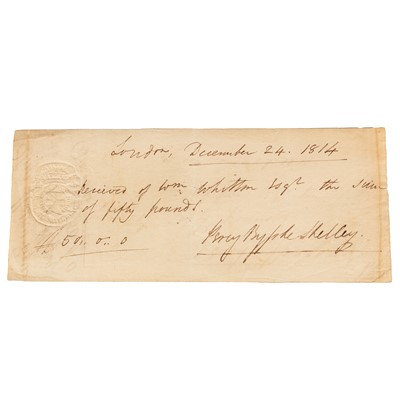 London, December 24. 1814
Received of Wm Whitton Esqr. the sum
of fifty pounds.
£ 50. 0. 0
Percy Bysshe Shelley.